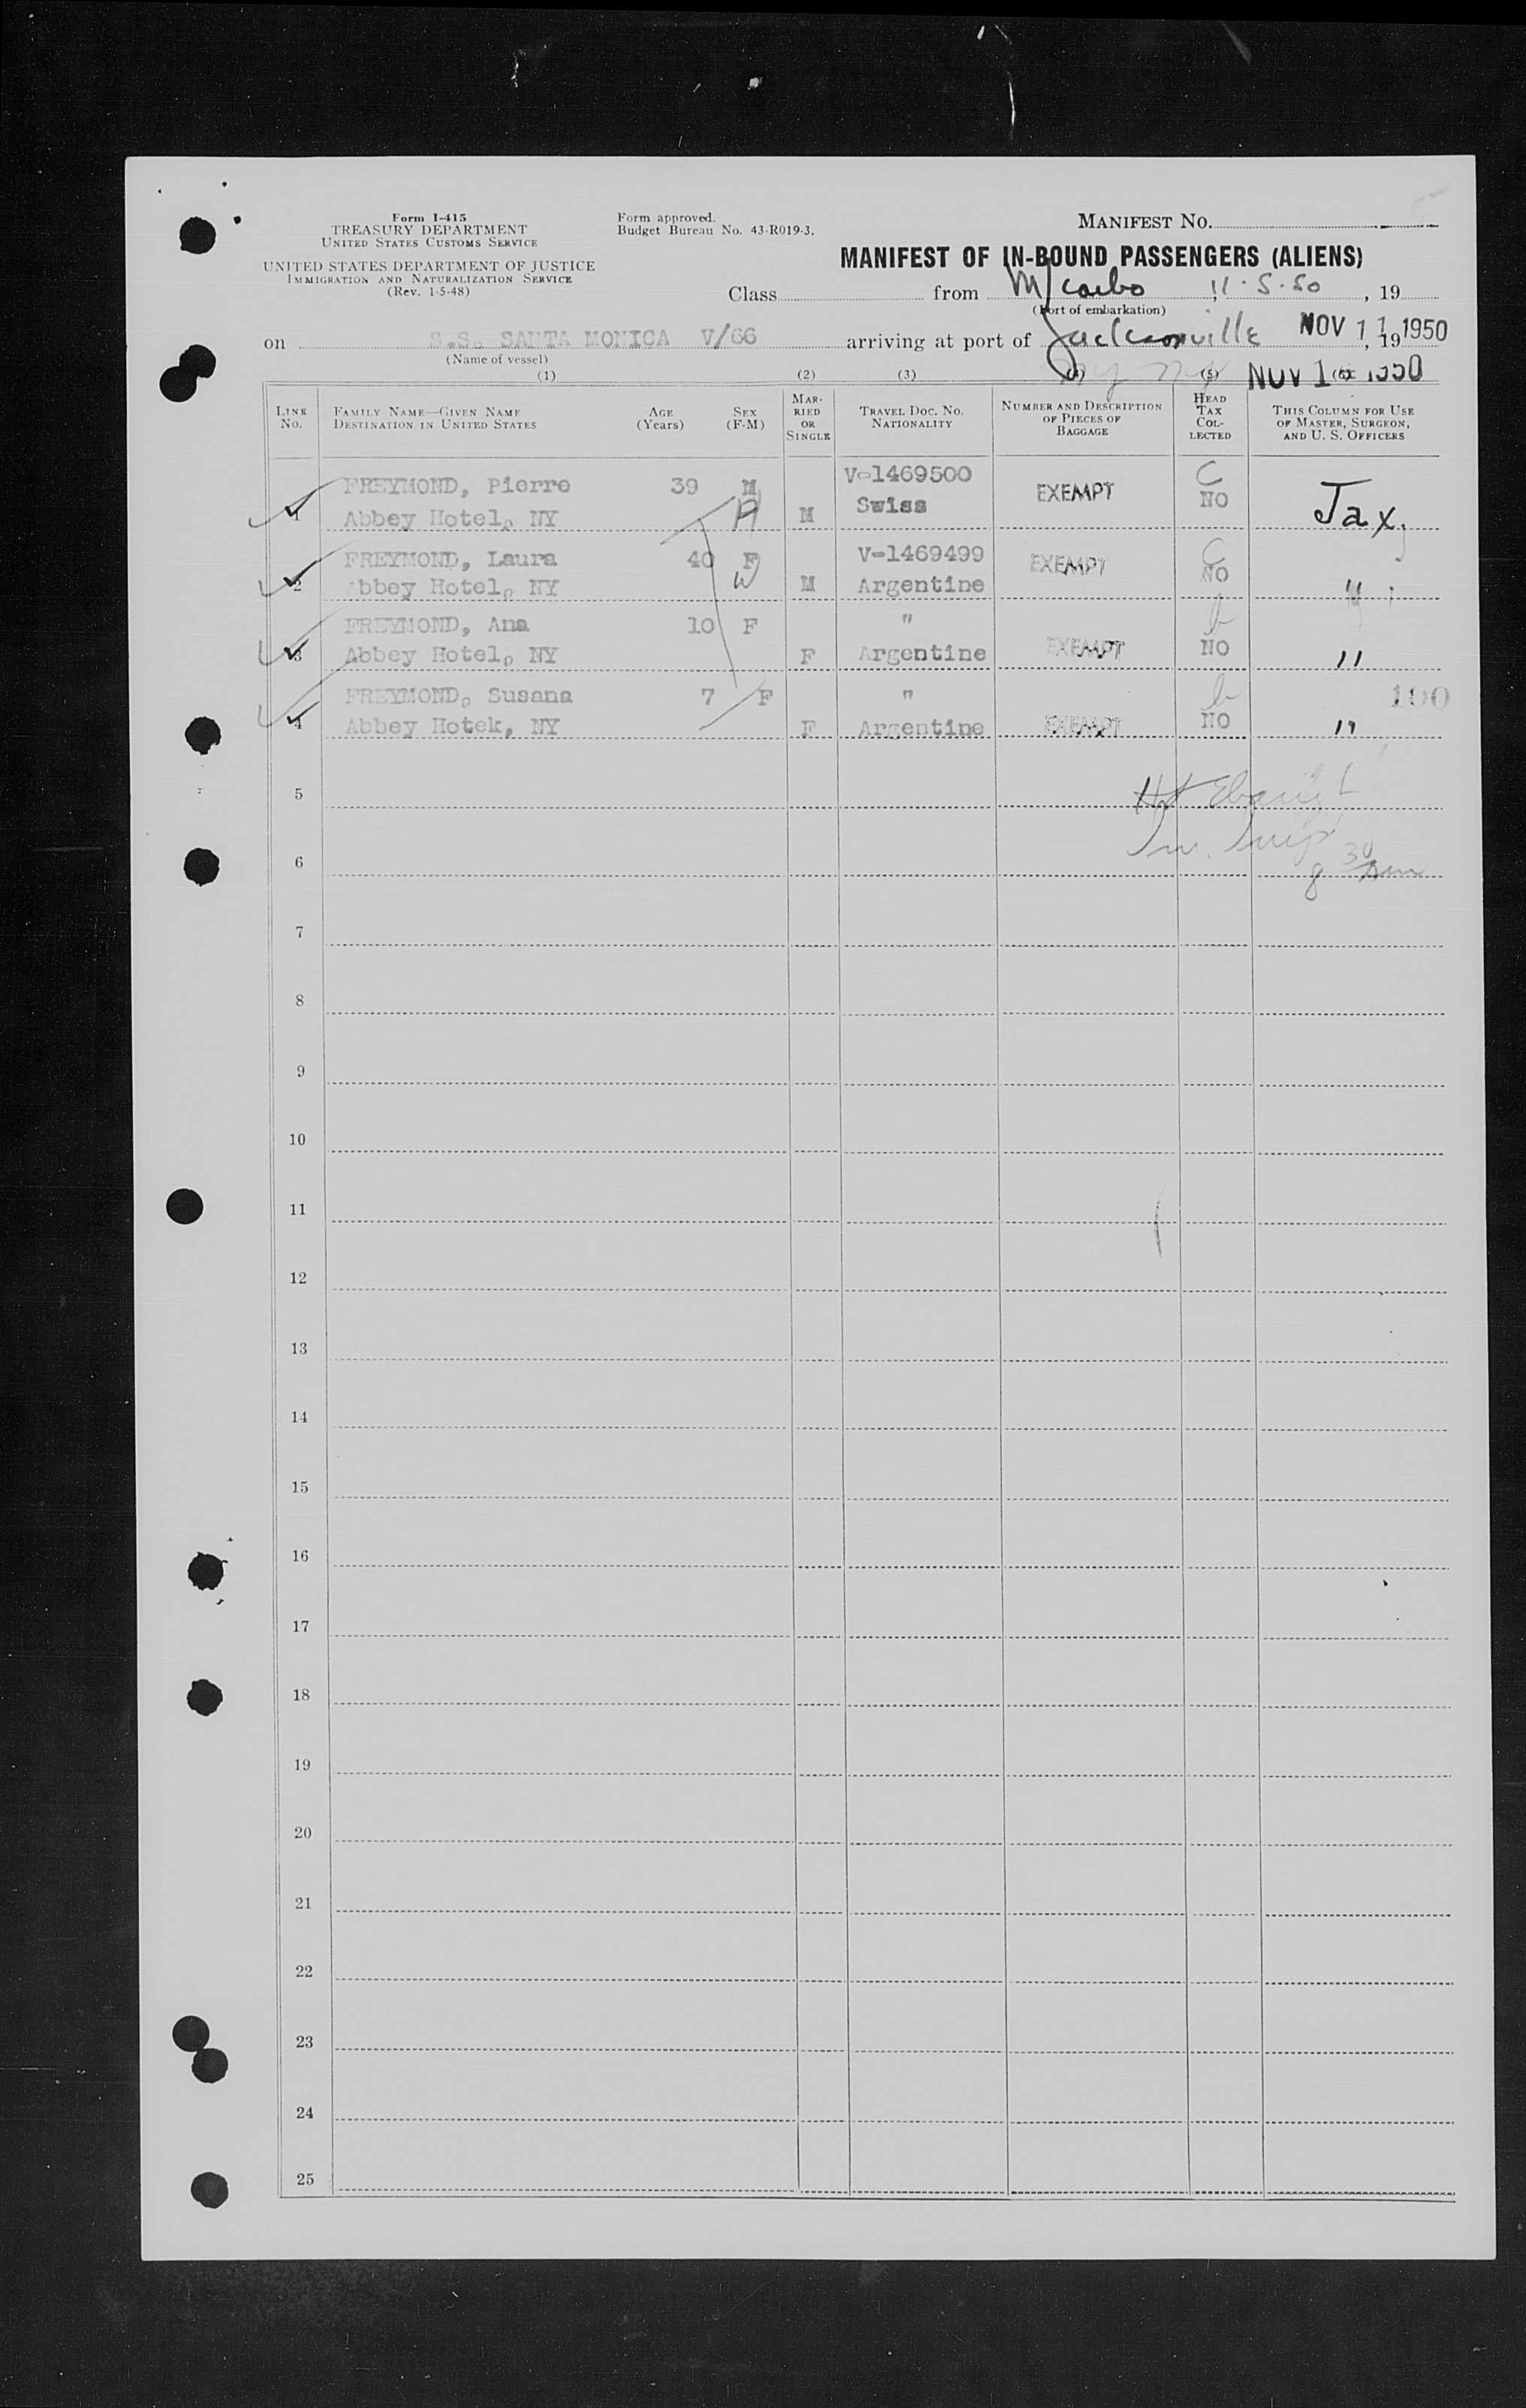 Form I-415
TREASURY DEPARTMENT
UNITED STATES CUSTOMS SERVICE
UNITED STATES DEPARTMENT OF JUSTICE
IMMIGRATION AND NATURALIZATION SERVICE
(Rev. 1-5-48)
Form approved.
Budget Bureau No. 43-R019-3.
MANIFEST NO.
MANIFEST OF IN-BOUND PASSENGERS (ALIENS)
Class from M/caibo 11.5.50, 19
(Port of embarkation)
on S.S. SANTA MONICA V/66 arriving at port of Jacksonville NOV 11 1950, 19
(Name of vessel)
(1) (2) (3) (4) (5) (6)
LINK No. FAMILY NAME—GIVEN NAME DESTINATION IN UNITED STATES AGE (Years) SEX (F-M) MARRIED OR SINGLE TRAVEL DOC. NO. NATIONALITY NUMBER AND DESCRIPTION OF PIECES OF BAGGAGE HEAD TAX COLLECTED THIS COLUMN FOR USE OF MASTER, SURGEON, AND U. S. OFFICERS
FREYMOND, Pierre 39 M V-1469500 EXEMPT C
1 Abbey Hotel, NY M Swiss NO Jax.
FREYMOND, Laura 40 F V-1469499 EXEMPT C
2 Abbey Hotel, NY W M Argentine NO "
FREYMOND, Ana 10 F " b
3 Abbey Hotel, NY F Argentine EXEMPT NO "
FREYMOND, Susana 7 F " b 100
4 Abbey Hotek, NY F Argentine EXEMPT NO "
5
6
8 30 am
7
8
9
10
11
12
13
14
15
16
17
18
19
20
21
22
23
24
25